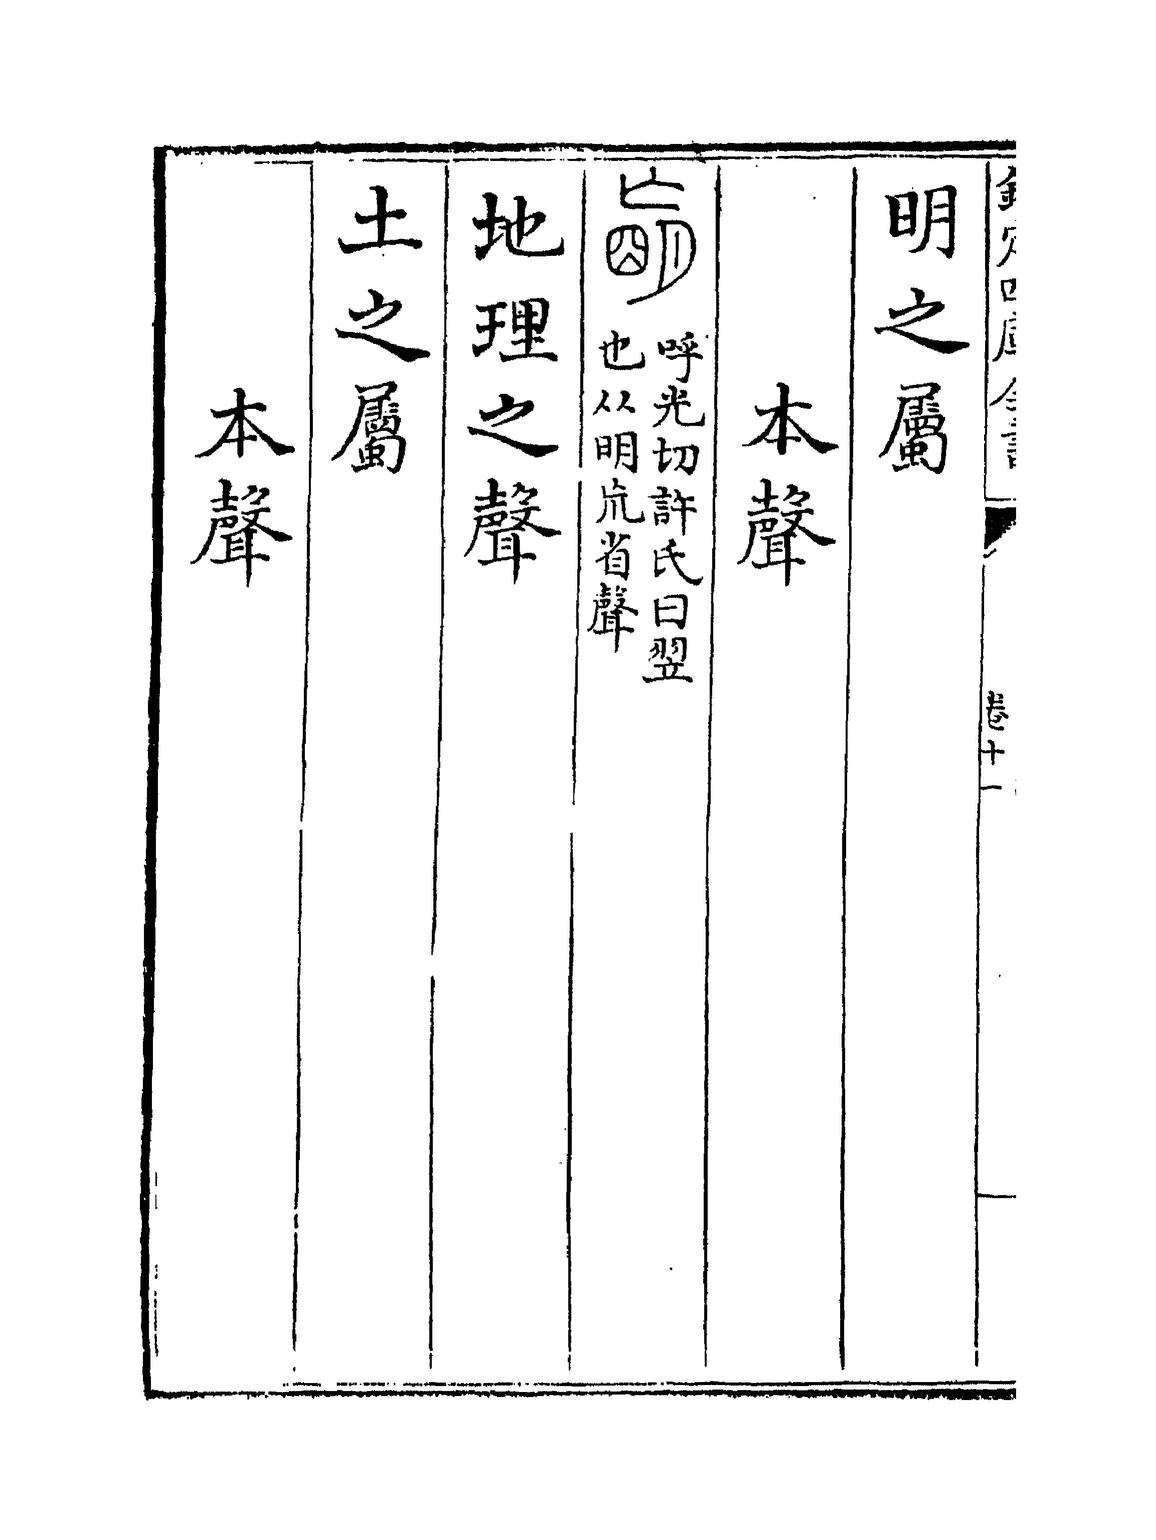 欽定四庫全書
卷十一
明之屬
本聲
呼光切許氏曰翌
也从明巟省聲
地理之聲
土之屬
本聲